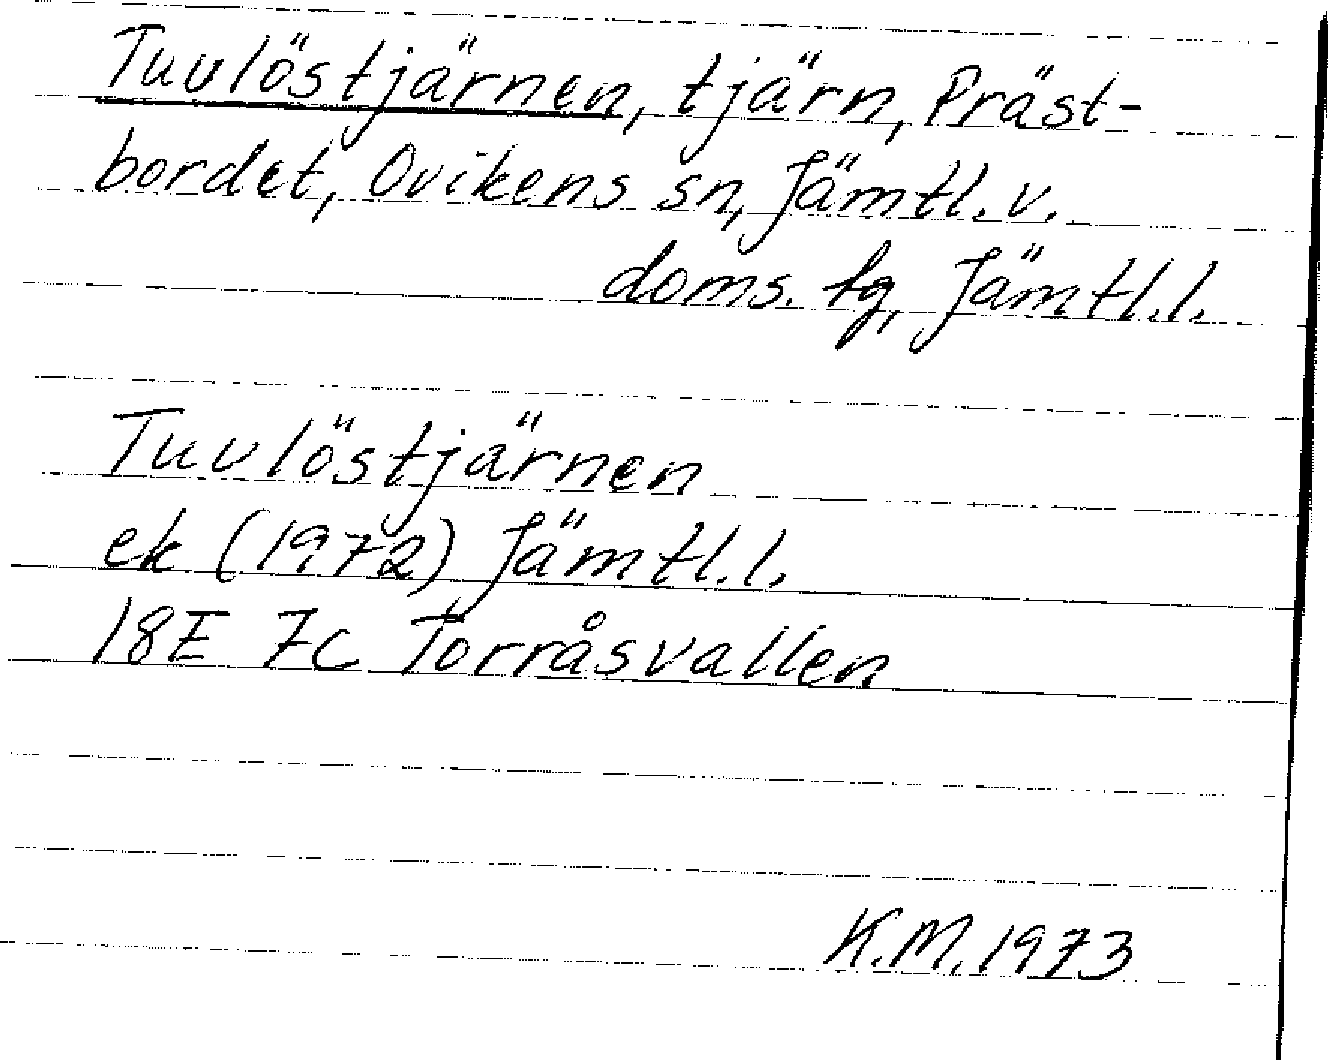 Tuvlöstjärnen, tjärn, Präst-
bordet, Ovikens sn, Jämtl. v.
doms. fg, Jämtl. l.
Tuvlöstjärnen
ek (1972) Jämtl. l.
18E 7c Torråsvallen
K.M. 1973